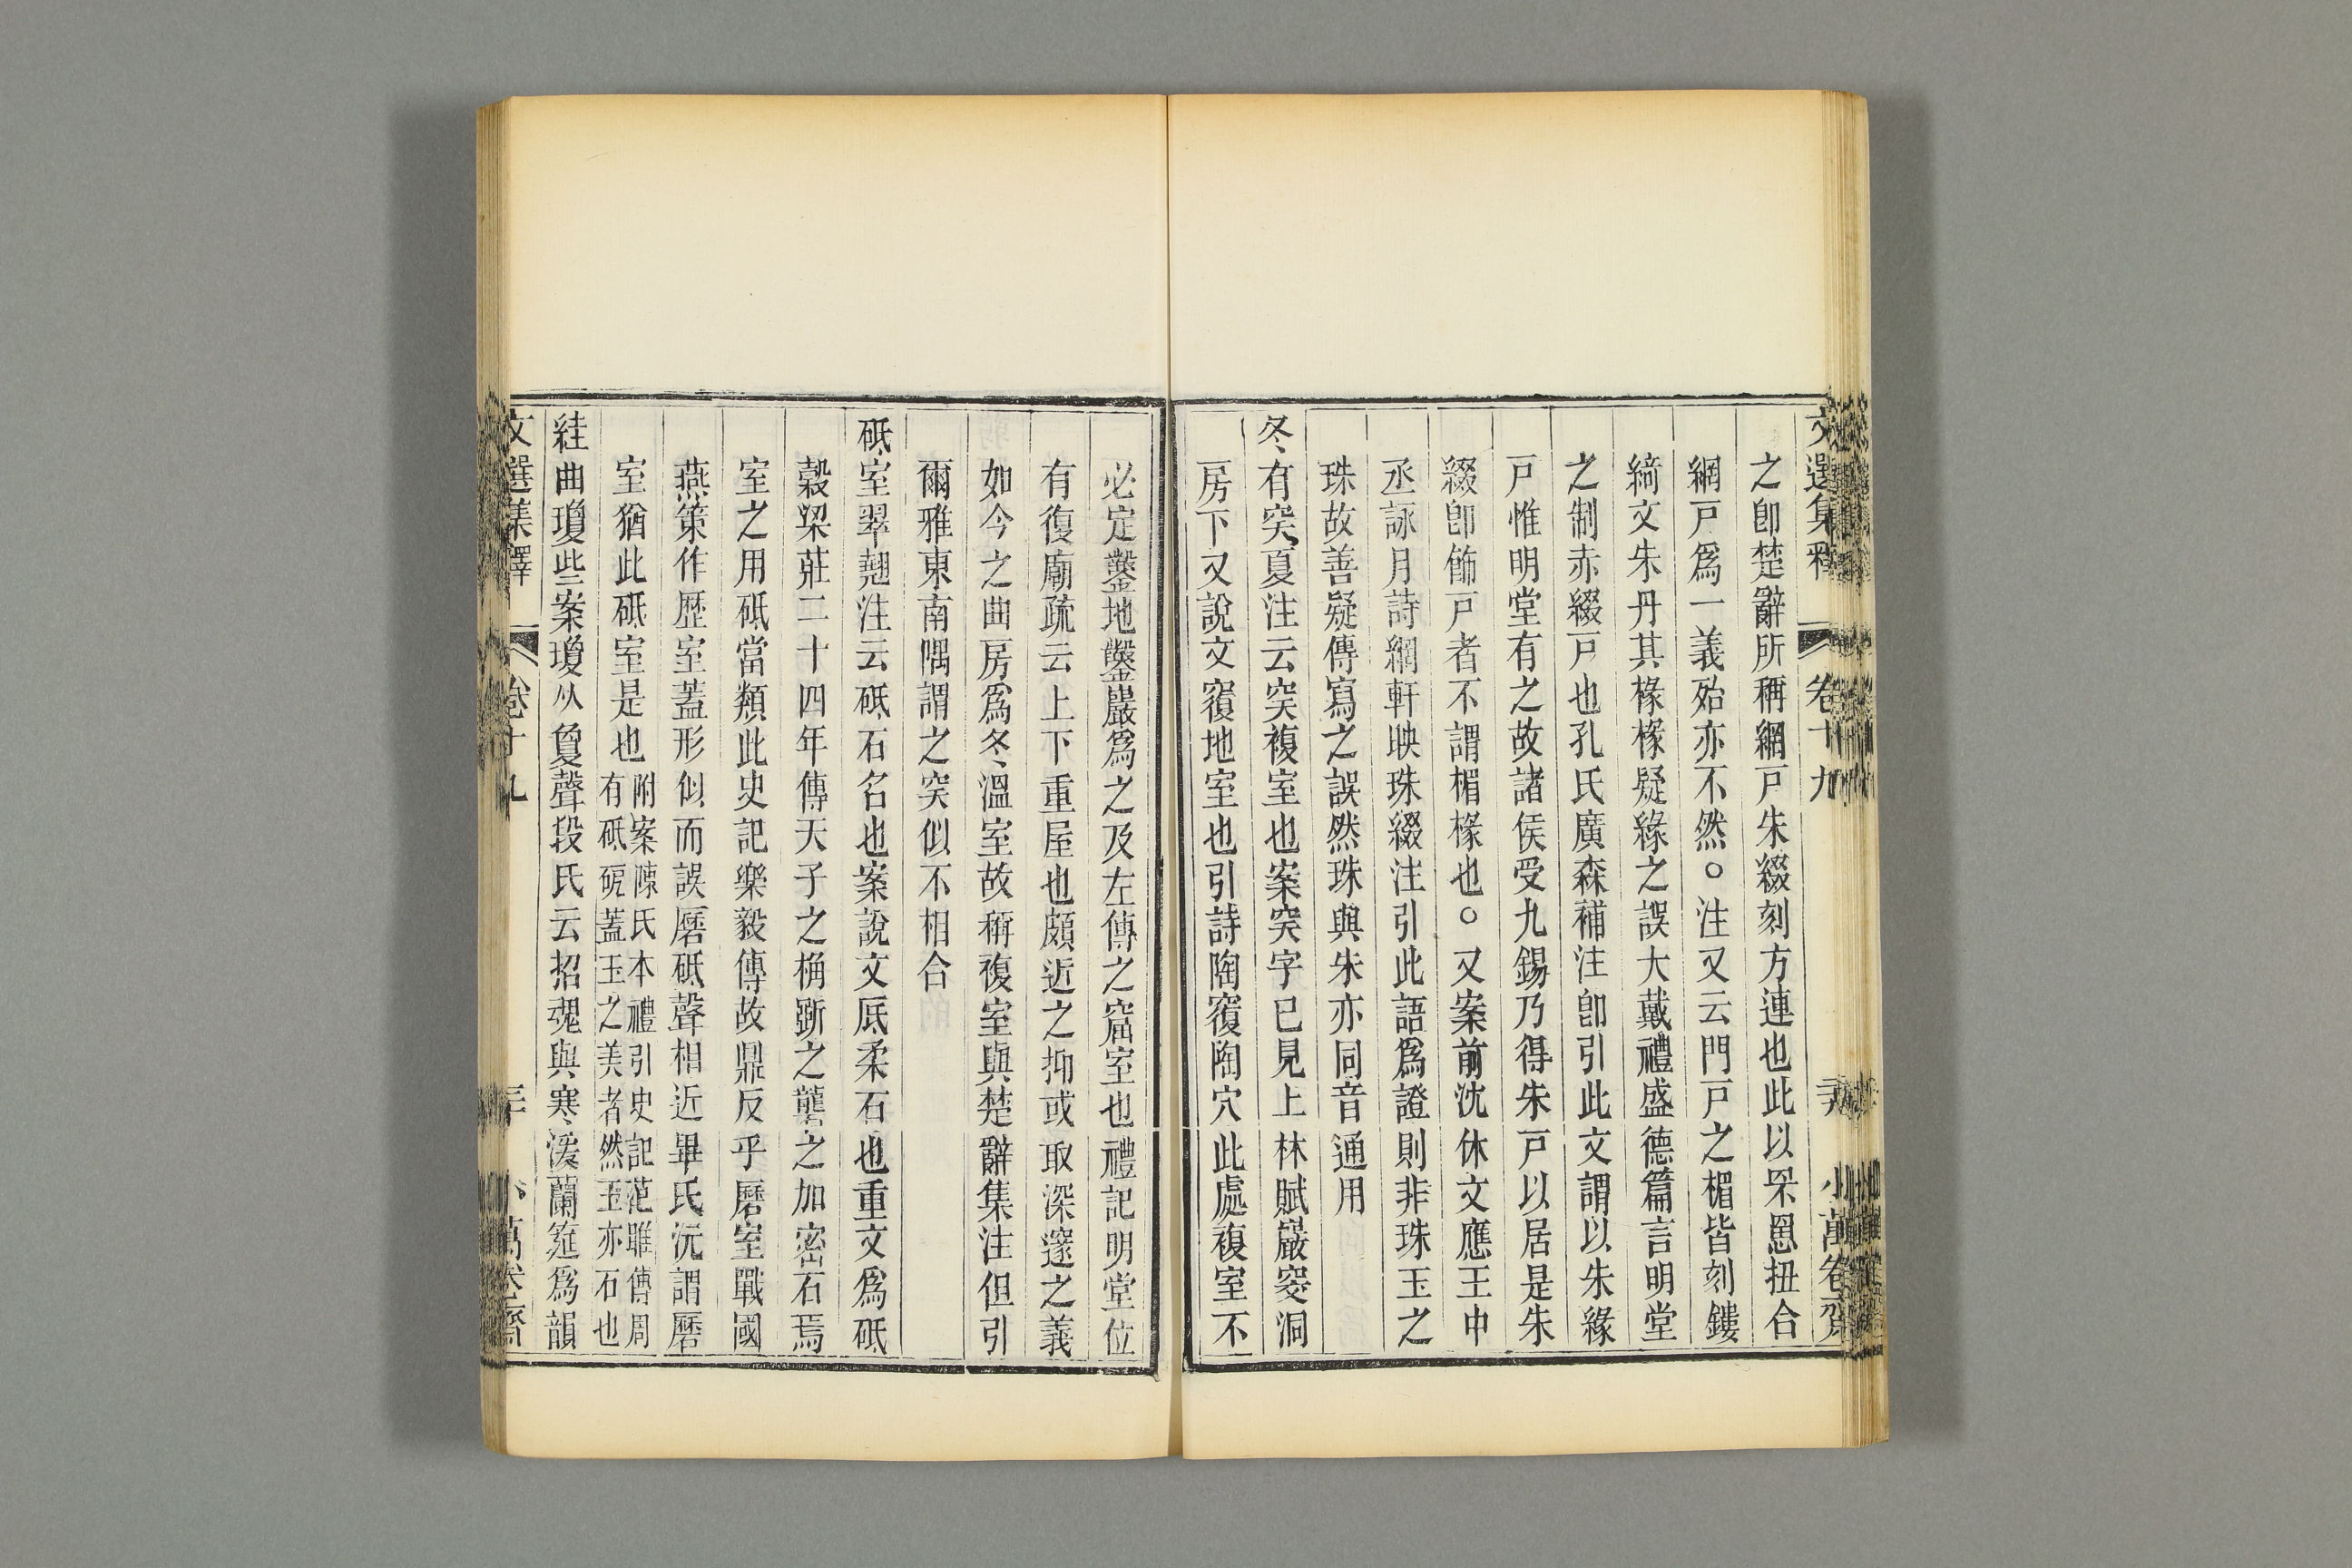 文選集釋 卷十九 小萬卷齋
之卽楚辭所稱網戸朱綴刻方連也此以罘罳扭合
網戸爲一義殆亦不然○注又云門戸之楣皆刻鏤
綺文朱丹其椽椽疑緣之誤大戴禮盛德篇言明堂
之制赤綴戸也孔氏廣森補注卽引此文謂以朱緣
戸惟明堂有之故諸侯受九錫乃得朱戸以居是朱
綴卽飾戸者不謂楣椽也○又案前沈休文應王中
丞詠月詩網軒映珠綴注引此語爲證則非珠玉之
珠故善疑傳寫之誤然珠與朱亦同音通用
冬有突夏注云突複室也案突字已見上林賦巖窔洞
房下又說文𥨍地室也引詩陶𥨍陶穴此處複室不
必定鑿地鑿巖爲之及左傳之窟室也禮記明堂位
有復廟疏云上下重屋也頗近之抑或取深邃之義
如今之曲房爲冬溫室故稱複室與楚辭集注但引
爾雅東南隅謂之窔似不相合
砥室翠翹注云砥石名也案說文厎柔石也重文爲砥
穀梁莊二十四年傳天子之桷斲之礱之加密石焉
室之用砥當類此史記樂毅傳故鼎反乎磿室戰國
燕策作歷室蓋形似而誤磿砥聲相近畢氏沅謂磿
室猶此砥室是也附案陳氏本禮引史記范雎傳周
有砥砨蓋玉之美者然玉亦石也
絓曲瓊些案瓊从敻聲段氏云招魂與寒湲蘭筵爲韻
文選集釋 卷十九 小萬卷齋